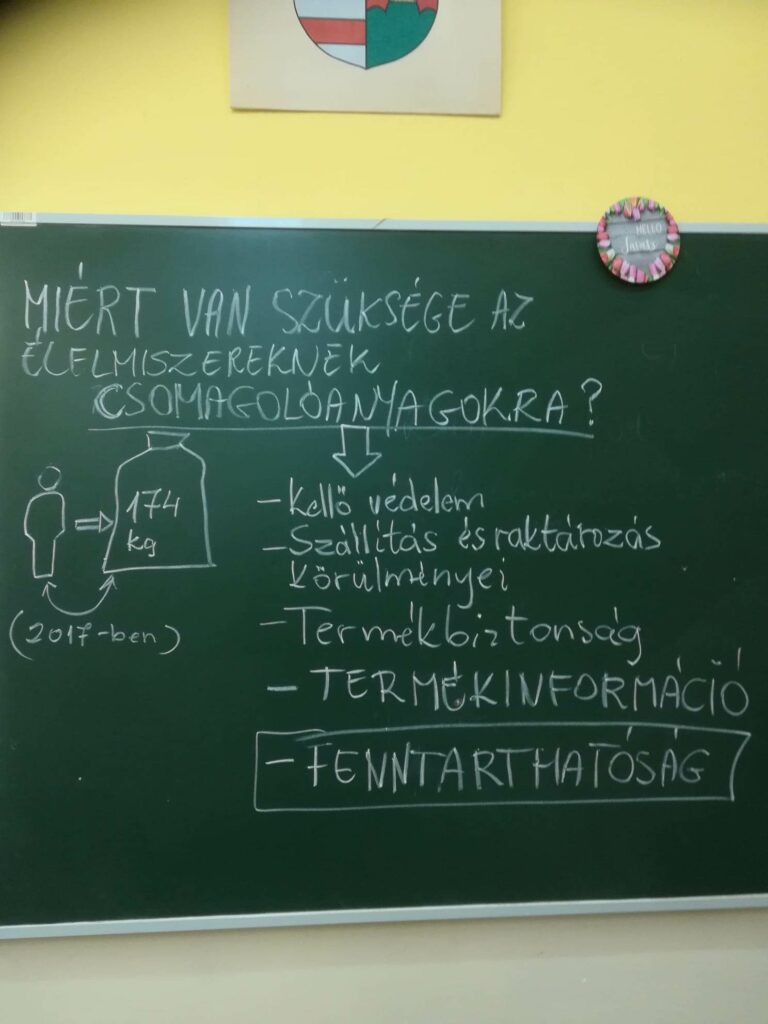 HELLO
MIÉRT VAN SZÜKSÉGE AZ
ÉLELMISZEREKNEK
CSOMAGOLÓANYAGOKRA?
174
kg
(2017-ben)
- Kellő védelem
- Szállítás és raktározás
körülményei
- Termékbiztonság
- TERMÉKINFORMÁCIÓ
- FENNTARTHATÓSÁG